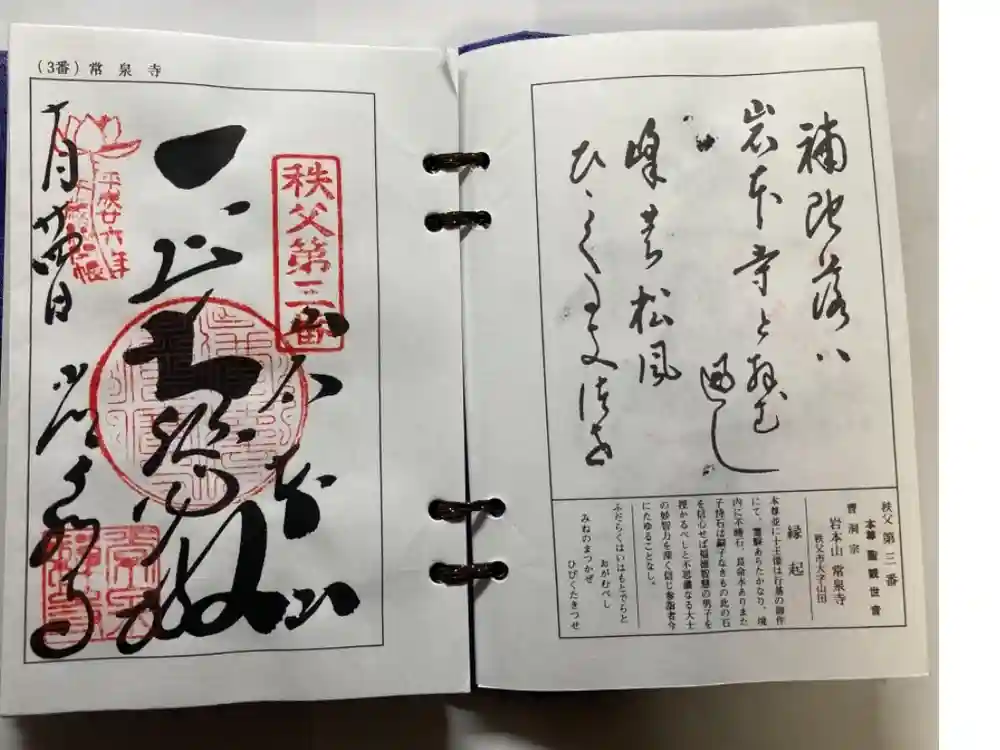 補陀落ハ
岩本寺と拝む
べし
峰の松風
ひゞくたきつせ
秩父第三番
本尊 聖観世音
曹洞宗
岩本山 常泉寺
秩父市大字山田
縁起
本尊並に十王像は行基の御作
にて、霊験あらたかなり、境
内に不睡石、長命水ありまた
子持石は嗣子なきもの此の石
を信心せば福徳智慧の男子を
授かるべしと不思議なる大士
の妙智力を深く信じ参詣者今
にたゆることなし。
ふだらくはいはもとでらと
おがむべし
みねのまつかぜ
ひびくたきつせ
(3番) 常泉寺
秩父第三番
岩本山
平成廿六年
十月廿四日
常泉寺